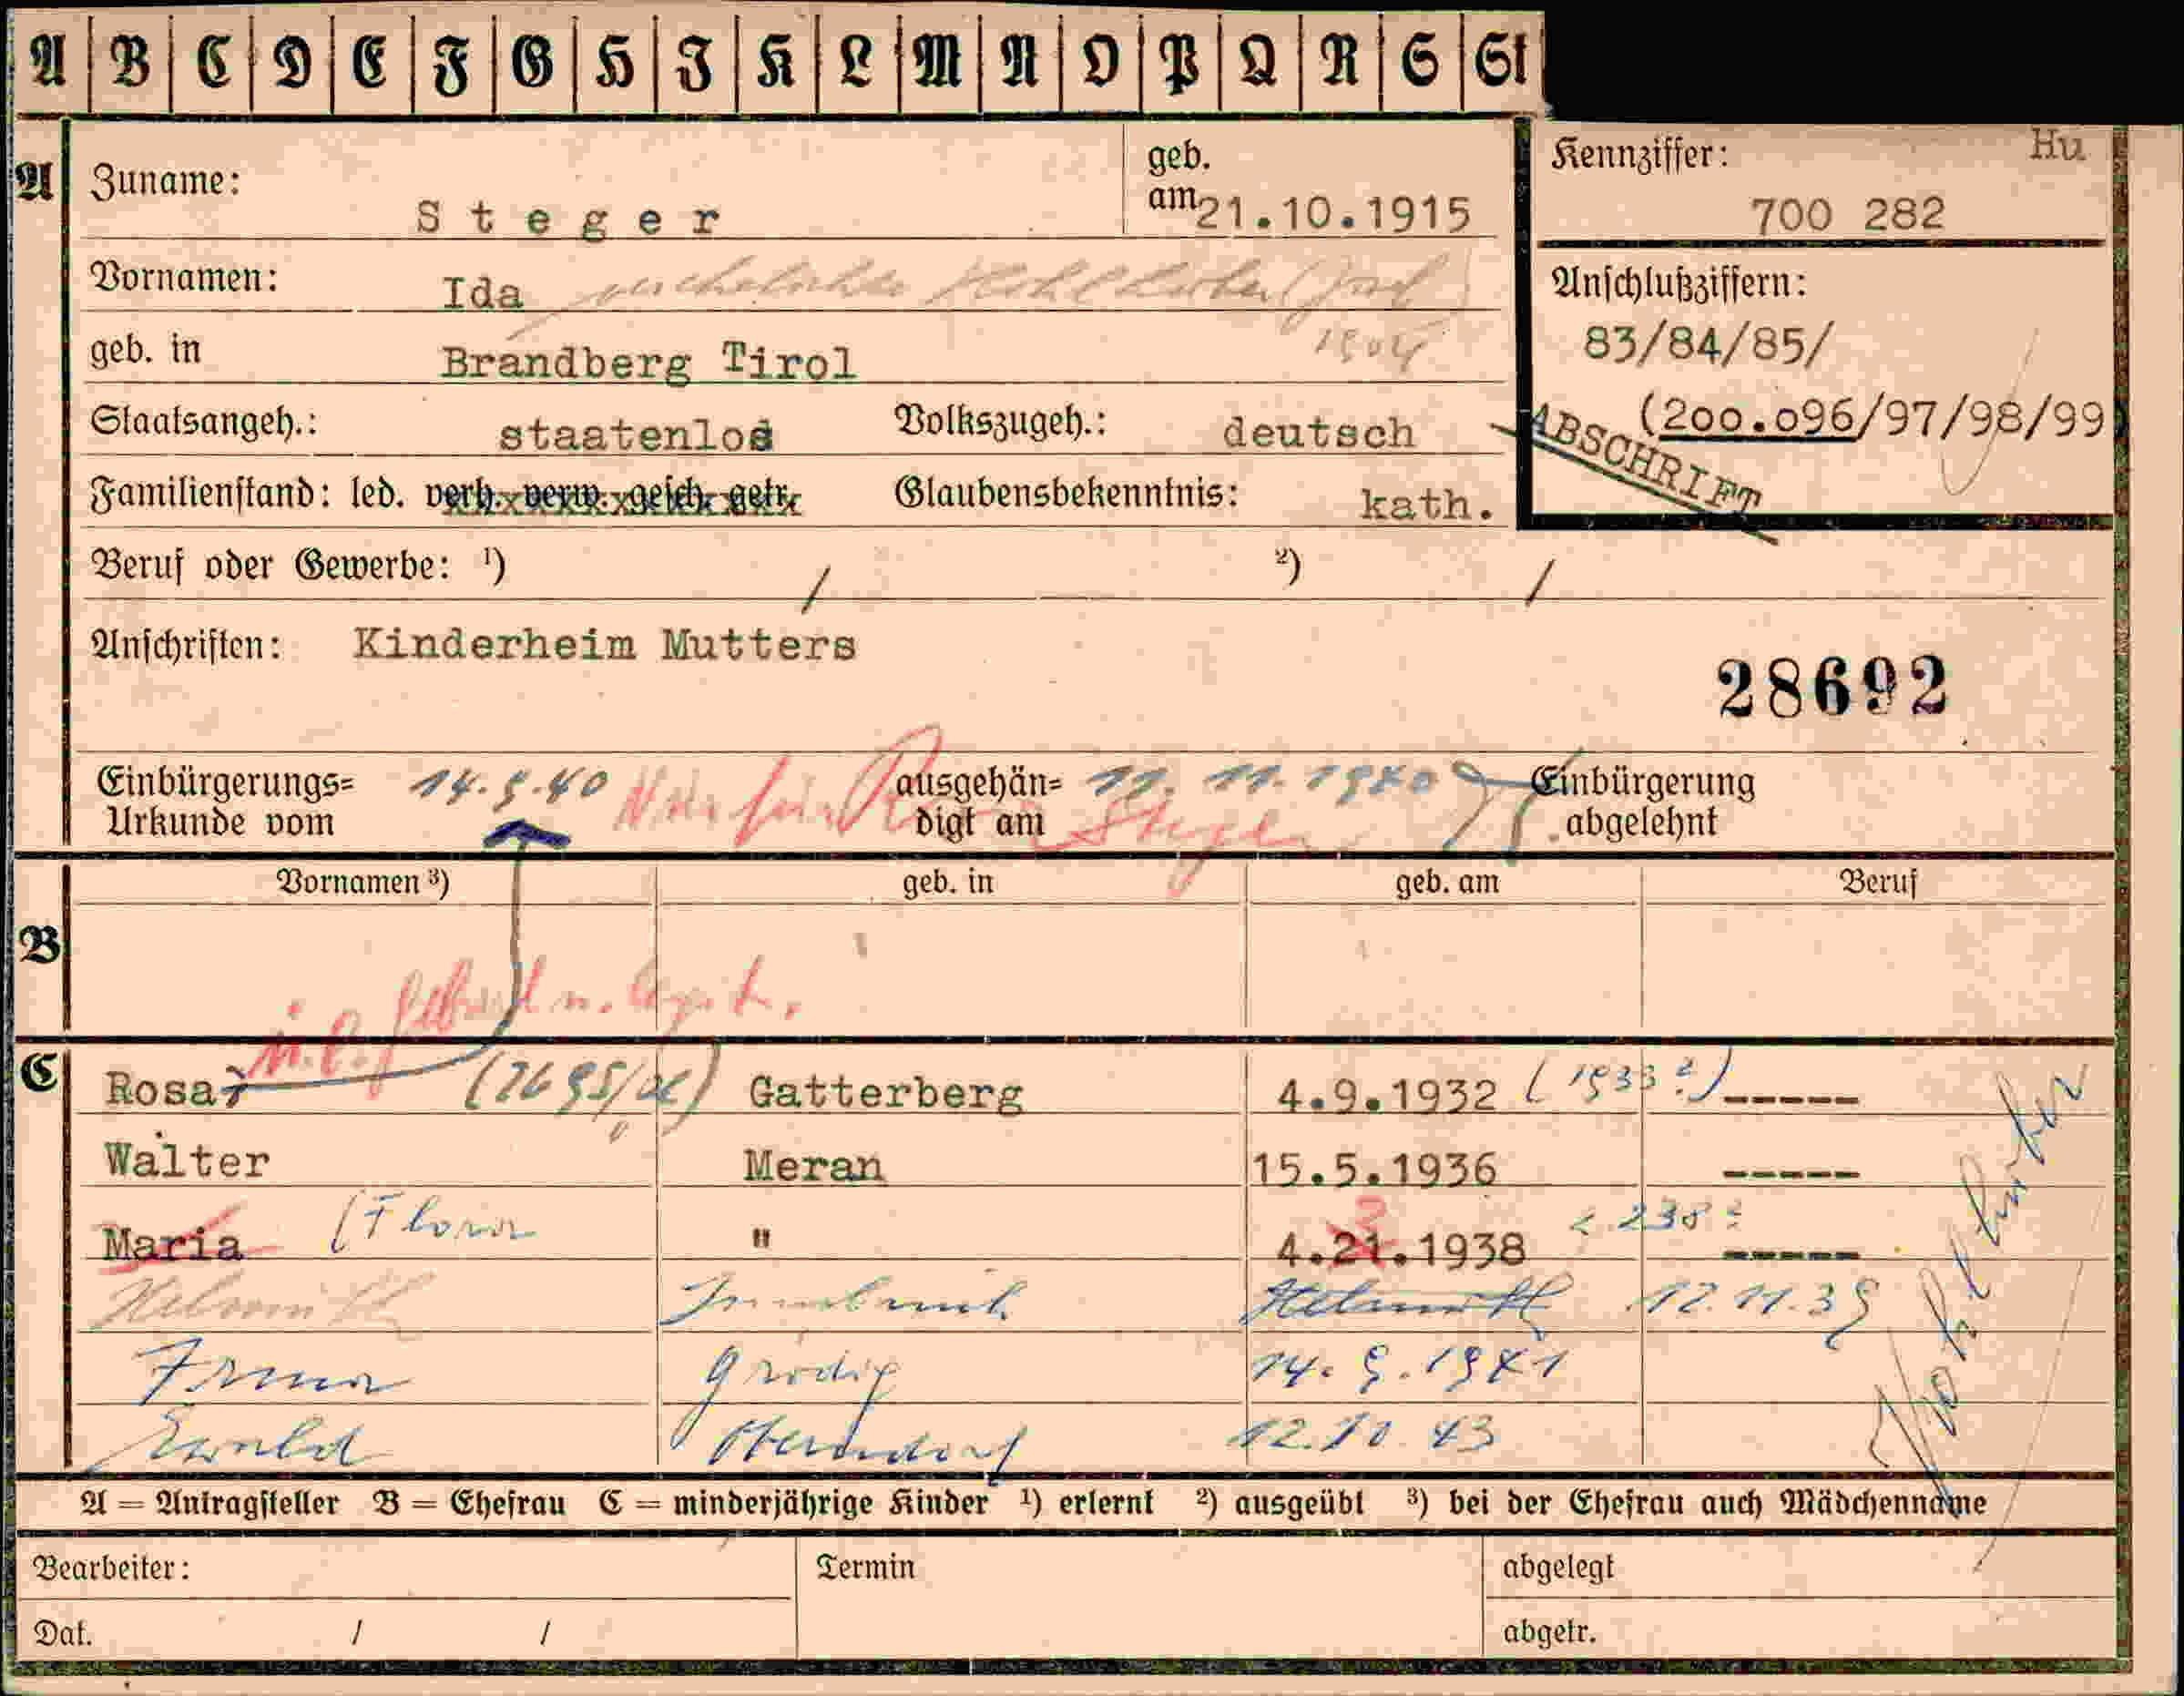 A B C D E F G H I K L M N O P Q R S St
A
Zuname: Steger
geb. am 21.10.1915
Kennziffer: Hu
700 282
Vornamen: Ida
geb. in Brandberg Tirol
1904
Anschlußziffern:
83/84/85/
(200.096/97/98/99)
ABSCHRIFT
Staatsangeh.: staatenlos Volkszugeh.: deutsch
Familienstand: led. verh. verw. gesch. getr. Glaubensbekenntnis: kath.
Beruf oder Gewerbe: ¹) / ²) /
Anschriften: Kinderheim Mutters
28692
Einbürgerungs= Urkunde vom 14.9.40
Nur für Rosa Steger
ausgehän= digt am 11. 11. 1940
Einbürgerung abgelehnt
Vornamen ³) geb. in geb. am Beruf
B
C
Rosa Gatterberg 4.9.1932 (1933?) -----
Walter Meran 15.5.1936 -----
Maria (Flora " 4.21.1938 3 -----
Helmuth Innsbruck Helmuth 12.11.39
Irma Grödig 14. 9. 1941
Ewald 12.10.43
A = Antragsteller B = Ehefrau C = minderjährige Kinder ¹) erlernt ²) ausgeübt ³) bei der Ehefrau auch Mädchenname
Bearbeiter: Termin abgelegt
Dat. / / abgetr.